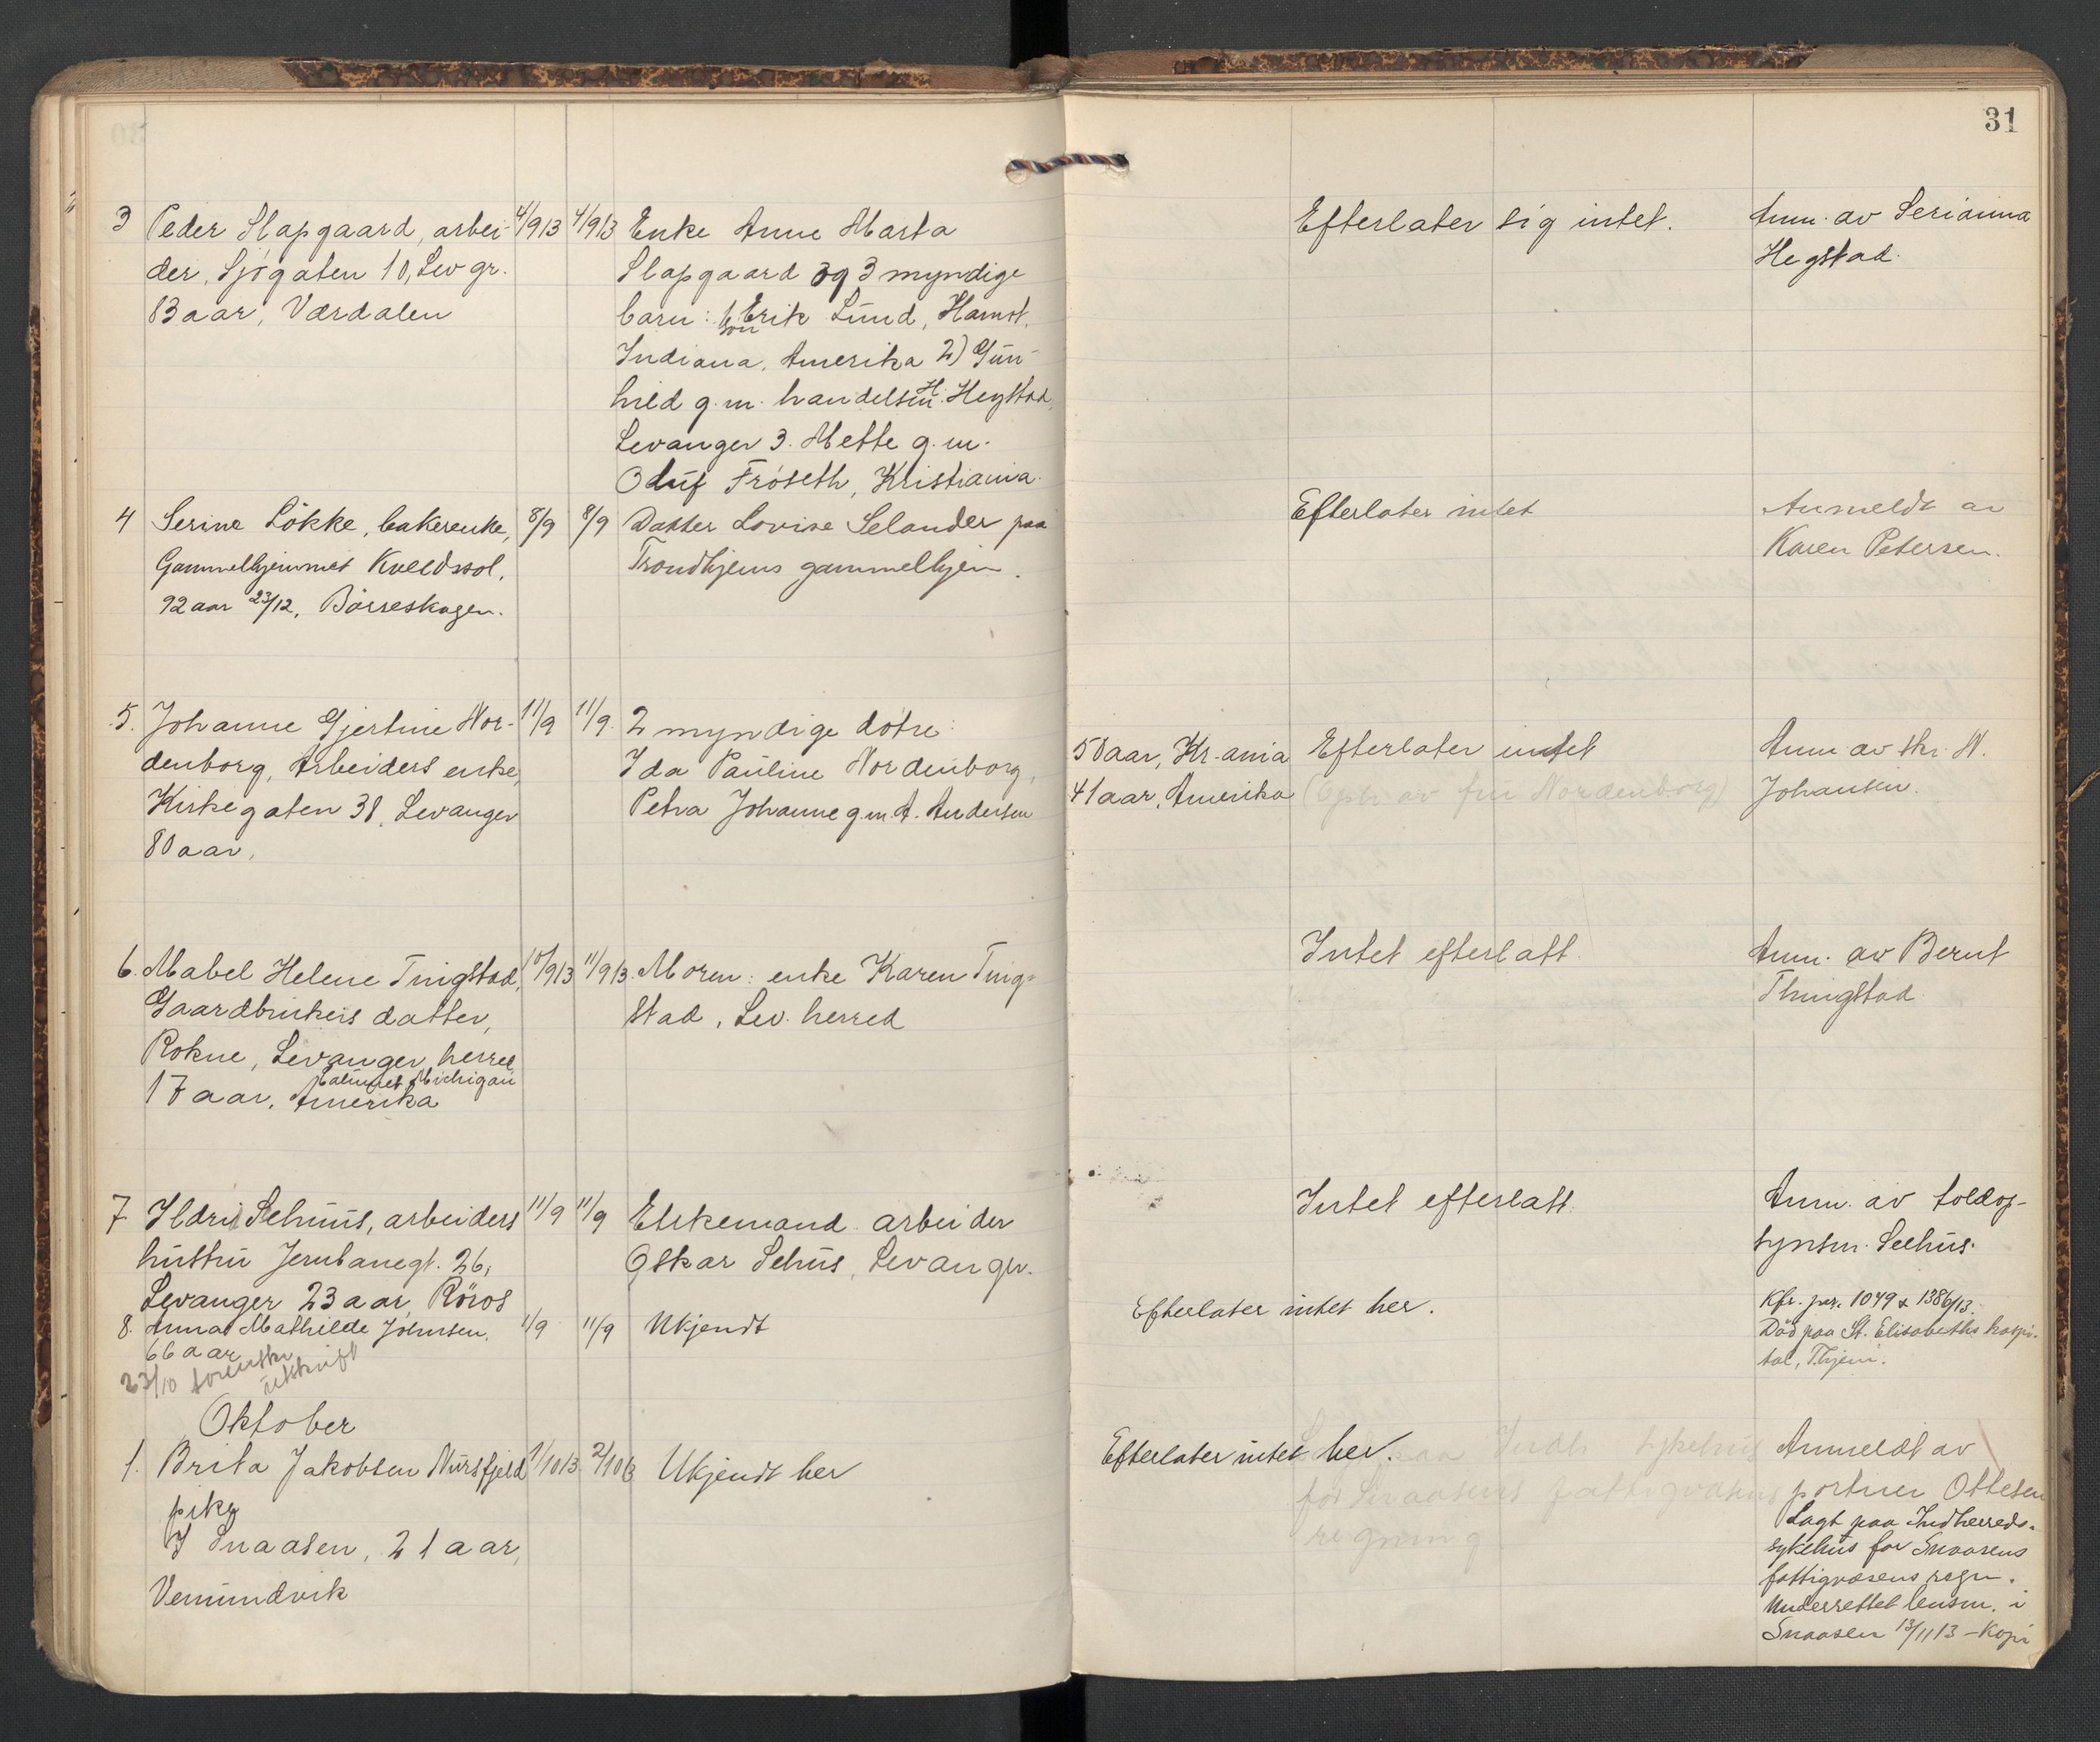 31
3 Peder Slapgaard, arbei- 4/913 4/913 Enke Anne Marta Efterlater sig intet. Anm. av Serianna
der, Sjøgaten 10, Lev gr. Slapgaard og 3 myndige Hegstad.
83 aar, Værdalen barn: 1) Erik Lund, Hamst.
Indiana, Amerika 2) Gun-
hild g. m. handelsm. H. Hegstad,
Levanger 3. Mette g. m.
Oluf Fröseth, Kristiania.
4 Serine Lökke, bakerenke, 8/9 8/9 Datter Lovise Selander paa Efterlater intet Anmeldt av
Gammelhjemmet Kveldssol, Trondhjems gammelhjem. Karen Petersen.
92 aar 23/12, Börseskogen.
5. Johanne Gjertine Nor- 11/9 11/9. 2 myndige døtre:
denborg, Arbeiders enke, Ida Pauline Nordenborg, 50 aar, Kr.ania Efterlater intet Anm. av skr. N.
Kirkegaten 38, Levanger Petra Johanne g.m. A. Andersen 41 aar, Amerika (Opl. av fru Nordenborg) Johansen.
80 aar,
6. Mabel Helene Tingstad, 10/913 11/913. Moren: enke Karen Ting- Intet efterlatt. Anm. av Bernt
Gaardbrukers datter, stad, Lev. herred Thingstad.
Rokne, Levanger herred
Calumet Michigan
17 aar, Amerika
7 Ildri Sehuus, arbeiders 11/9 11/9 Ektemand arbeider Intet efterlatt. Anm. av toldop-
hustru Jernbanegt. 26, Oskar Sehus, Levanger. synsm. Seehus.
Levanger 23 aar, Röros
8. Anna Mathilde Johnsen, 11/9 11/9 Ukjendt Efterlater intet her. Kfr. pr. 1049 & 1386/13.
66 aar Död paa St. Elisabeths hospi-
tal, Thjem.
23/10 utskrift
Oktober
1. Brita Jakobsen Nursfjeld 1/1013. 2/1013 Ukjendt her Efterlater intet her. Anmeldt av
pike for Snaasens fattigvæsens portner Ottesen
I Snaasen, 21 aar, regning Lagt paa Indherreds-
Vemundvik sykehus for Snaasens
fattigvæsens regn.
Underrettet lensm. i
Snaasen 13/1113 – Kopi